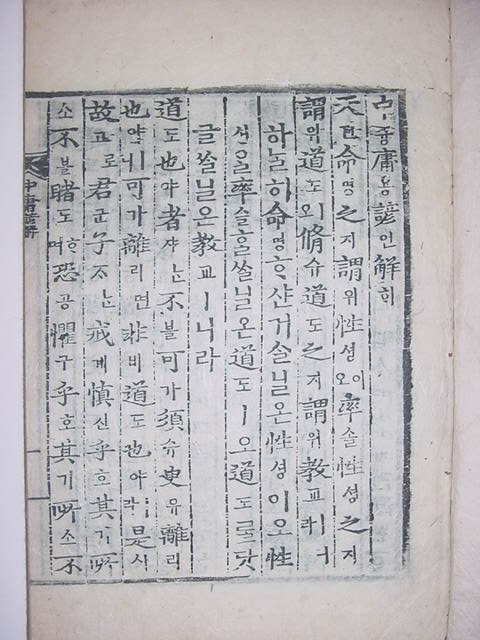 中듕庸용諺언解ᄒᆡ
天텬命명之지謂위性셩이오率솔性셩之지
謂위道도ㅣ오脩슈道도之지謂위教교ㅣ니라
하ᄂᆞᆯ히命명ᄒᆞ샨거슬닐온性셩이오性
셩을率솔ᄒᆞ욤을닐온道도ㅣ오道도ᄅᆞᆯ닷
글쓸닐온教교ㅣ니라
道도也야者쟈ᄂᆞᆫ不블可가須슈臾유離리
也야ㅣ니可가離리면非비道도也야ㅣ라是시
故고로君군子ᄌᆞᄂᆞᆫ戒계慎신乎호其기所
소不블睹도ᄒᆞ며恐공懼구乎호其기所소不
中庸諺解